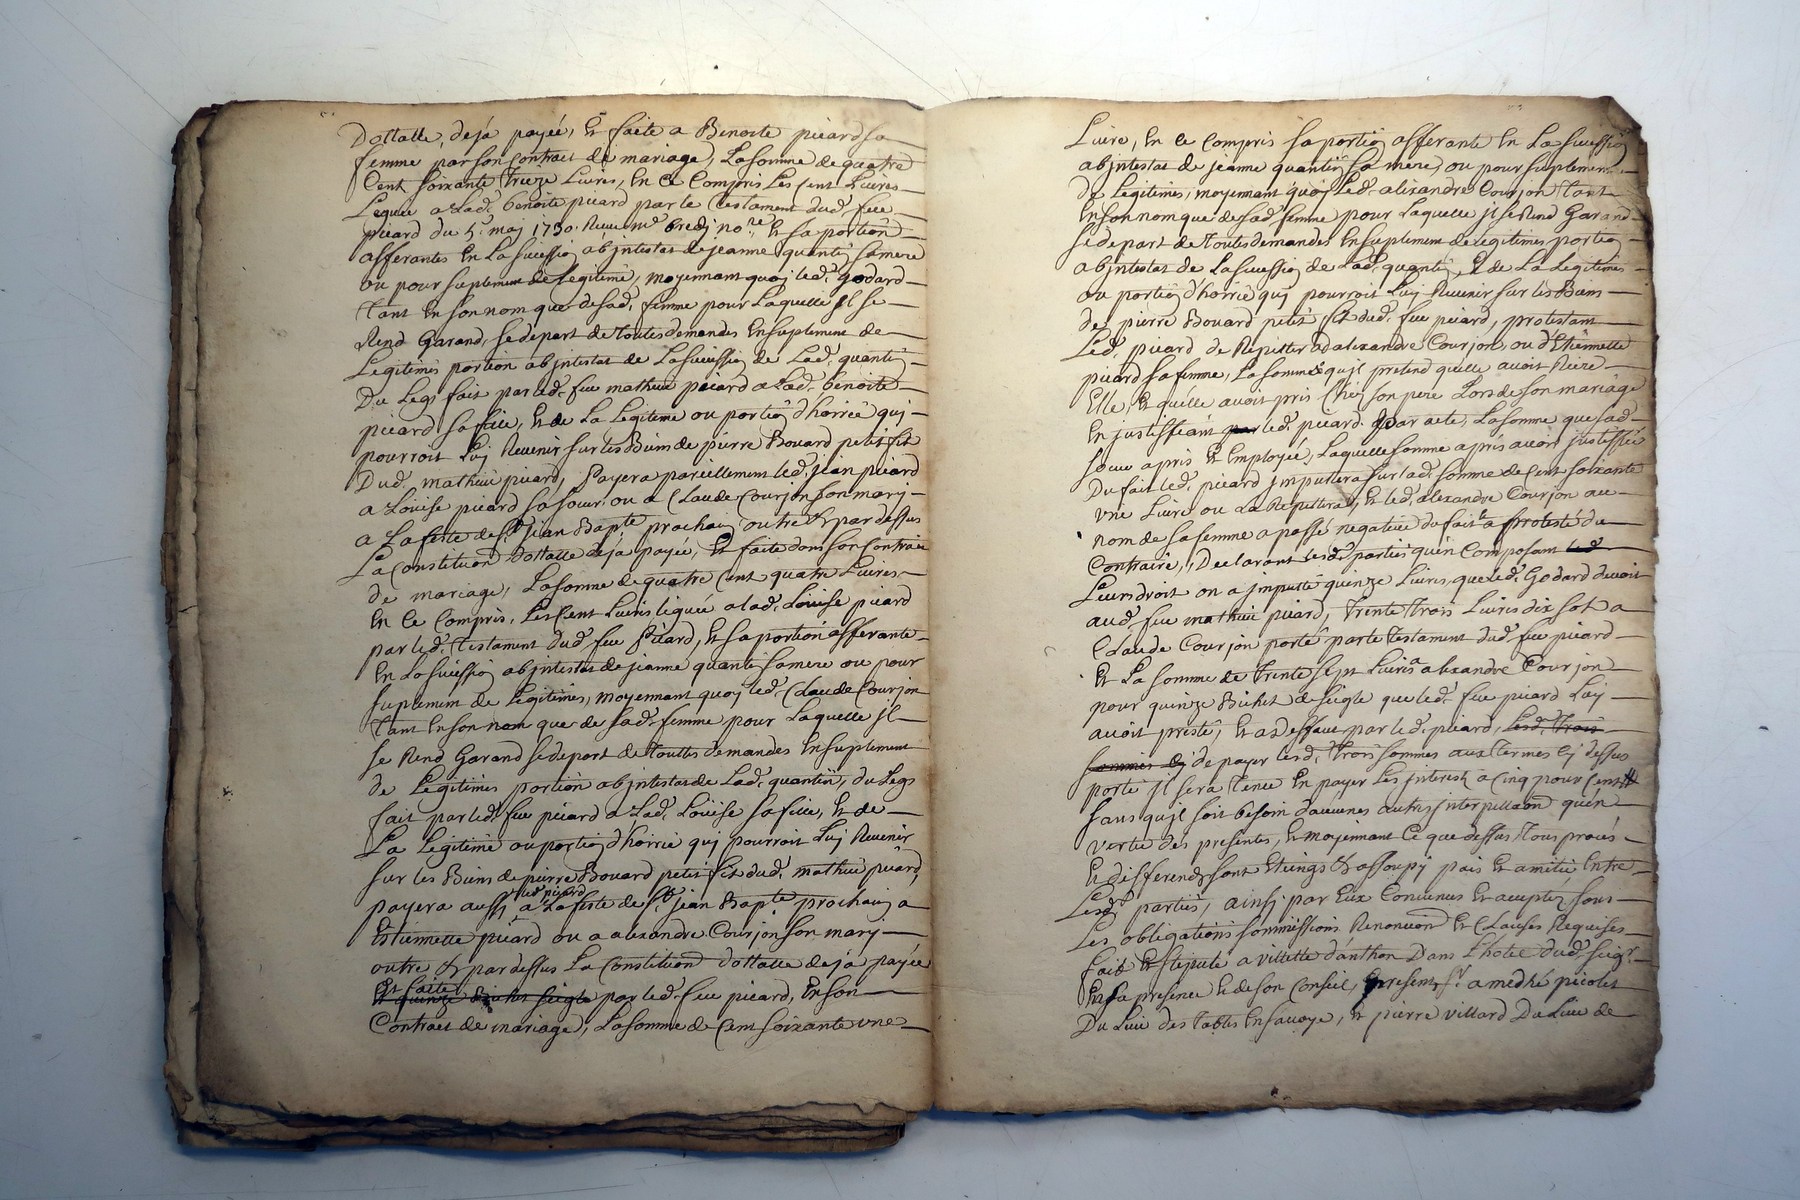 Dottalle, deja payéé, Et faite a Benoite picard sa
femme par son Contract de mariage, La somme de quatre
Cent soixante treze Livres, En Ce Compris Les Cent Livres
Leguéé a Lad.e benoite picard par le testament dud. feu
picard du 5.e maj 1730. Receu me bredj no.re Et sa portion
afferantes En La suession abjntestat de jeanne quantin sa mere
ou pour suplement de Legitime, moyennant quoj led. godard
tant En son nom que de sad. femme pour Laquelle Jl se
Rend Garand, se depart de toutes demandes En suplement de
Legitimes portion abjntestat de La suession de Lad. quantin
Du Legs fait par led. feu mathieu picard a Lad. benoite
picard sa fille, Et de La Legitime ou portion d'horrié quj
pourroit Luj Revenir sur les Biens de pierre Bouard petit fils
Dud. mathieu picard, payera pareillement led. jean picard
a Loüise picard sa soeur ou a Claude Courjon son marj
a La feste de St jean Bapte prochain outre & par dessus
La Constitution Dottalle deja payéé, Et faite dans son Contrat
de mariage, La somme de quatre Cent quatre Livres
En Ce Compris, Les Cent Livres leguéé a lad. Loüise picard
par led. testament dud. feu picard, Et sa portion afferante
En La suession abjntestat de jeanne quantin sa mere ou pour
suplement de Legitimes, moyennant quoj led. Claude Courjon
tant En son nom que de sad. femme pour Laquelle jl
se Rend Garand se depart de touttes demandes En suplement
de Legitimes portion abjntestat de Lad. quantin, du Legs
fait par led. feu picard a Lad. Loüise sa fille, Et de
La Legitime ou portion d'horrié quj pourroit Luj Revenir
sur les Biens de pierre Bouard petit fils dud. mathieu picard,
payera aussj led. picard a La feste de St jean Bapte prochain a
Estiennette picard ou a alexandre Courjon son marj
outre & par dessus La Constitution dottalle deja payéé
Et faite
Et quinze Bichet seigle par led. feu picard, En son
Contract de mariage, La somme de Cent soixante vne
Livre, En Ce Compris sa portion afferante En La suession
abjntestat de jeanne quantin sa mere, ou pour suplement
de Legitimes, moyennant quoj Led. alexandre Courjon tant
En son nom que de sad. femme pour Laquelle jl se Rend Garand
se depart de toutes demandes En suplement de legitimes portion
abjntestat de La suession de Lad. quantin, Et de La Legitimes
ou portion d'horrié quj pourroit Luj Revenir sur les Biens
de pierre Bouard petit fils dud. feu picard, protestant
Led. picard de Repetter ad. alexandre Courjon ou d'Etiennette
picard sa femme, La somme qu'jl pretend quelle avoit Riere
Elle, Et quelle avoit pris Chez son pere Lors de son mariage
En justiffiant par led. picard par acte, La somme que sad.
soeur a pris Et Employéé, Laquelle somme apres avoir justiffié
Du fait led. picard jmputtera sur lad. somme de Cent soixante
vne Livre ou La Repettera, Et led. alexandre Courjon au
nom de sa femme a passé negative du fait & a protesté du
Contraire, Declarant lesd. parties qu'en Composant led.
Leurs droit on a jmputté quinze Livres, que led. Godard devoit
aud. feu mathieu picard, trente trois Livres dix sols a
Claude Courjon porté par le testament dud. feu picard
Et La somme de trente sept Livres a alexandre Courjon
pour quinze Bichet de seigle que led. feu picard Luj
avoit presté, Et a deffaut par led. picard, Lesd. trois
sommes Cj de payer lesd. trois sommes aux termes Cj dessus
porté jl sera tenu En payer Les jnterest a Cinq pour Cent
sans qu'jl soit besoin d'aucunes autres jnterpellaon qu'en
vertu des presentes, Et moyennant Ce que dessus tous procés
Et differends sont Eteings & assoupy paix Et amitié Entre
Lesd. parties, ainsj par Eux Convenus Et acceptéz sous
Les obligations sommissions Renonciaon Et Clauses Requises
fait Et stipulé a villette d'anthon Dans L'hotel dud. seigr.
Et sa presence Et de son Conseil, presents sr. amedhé picolet
Du Lieu des tables En savoye, Et pierre villard Du Lieu de